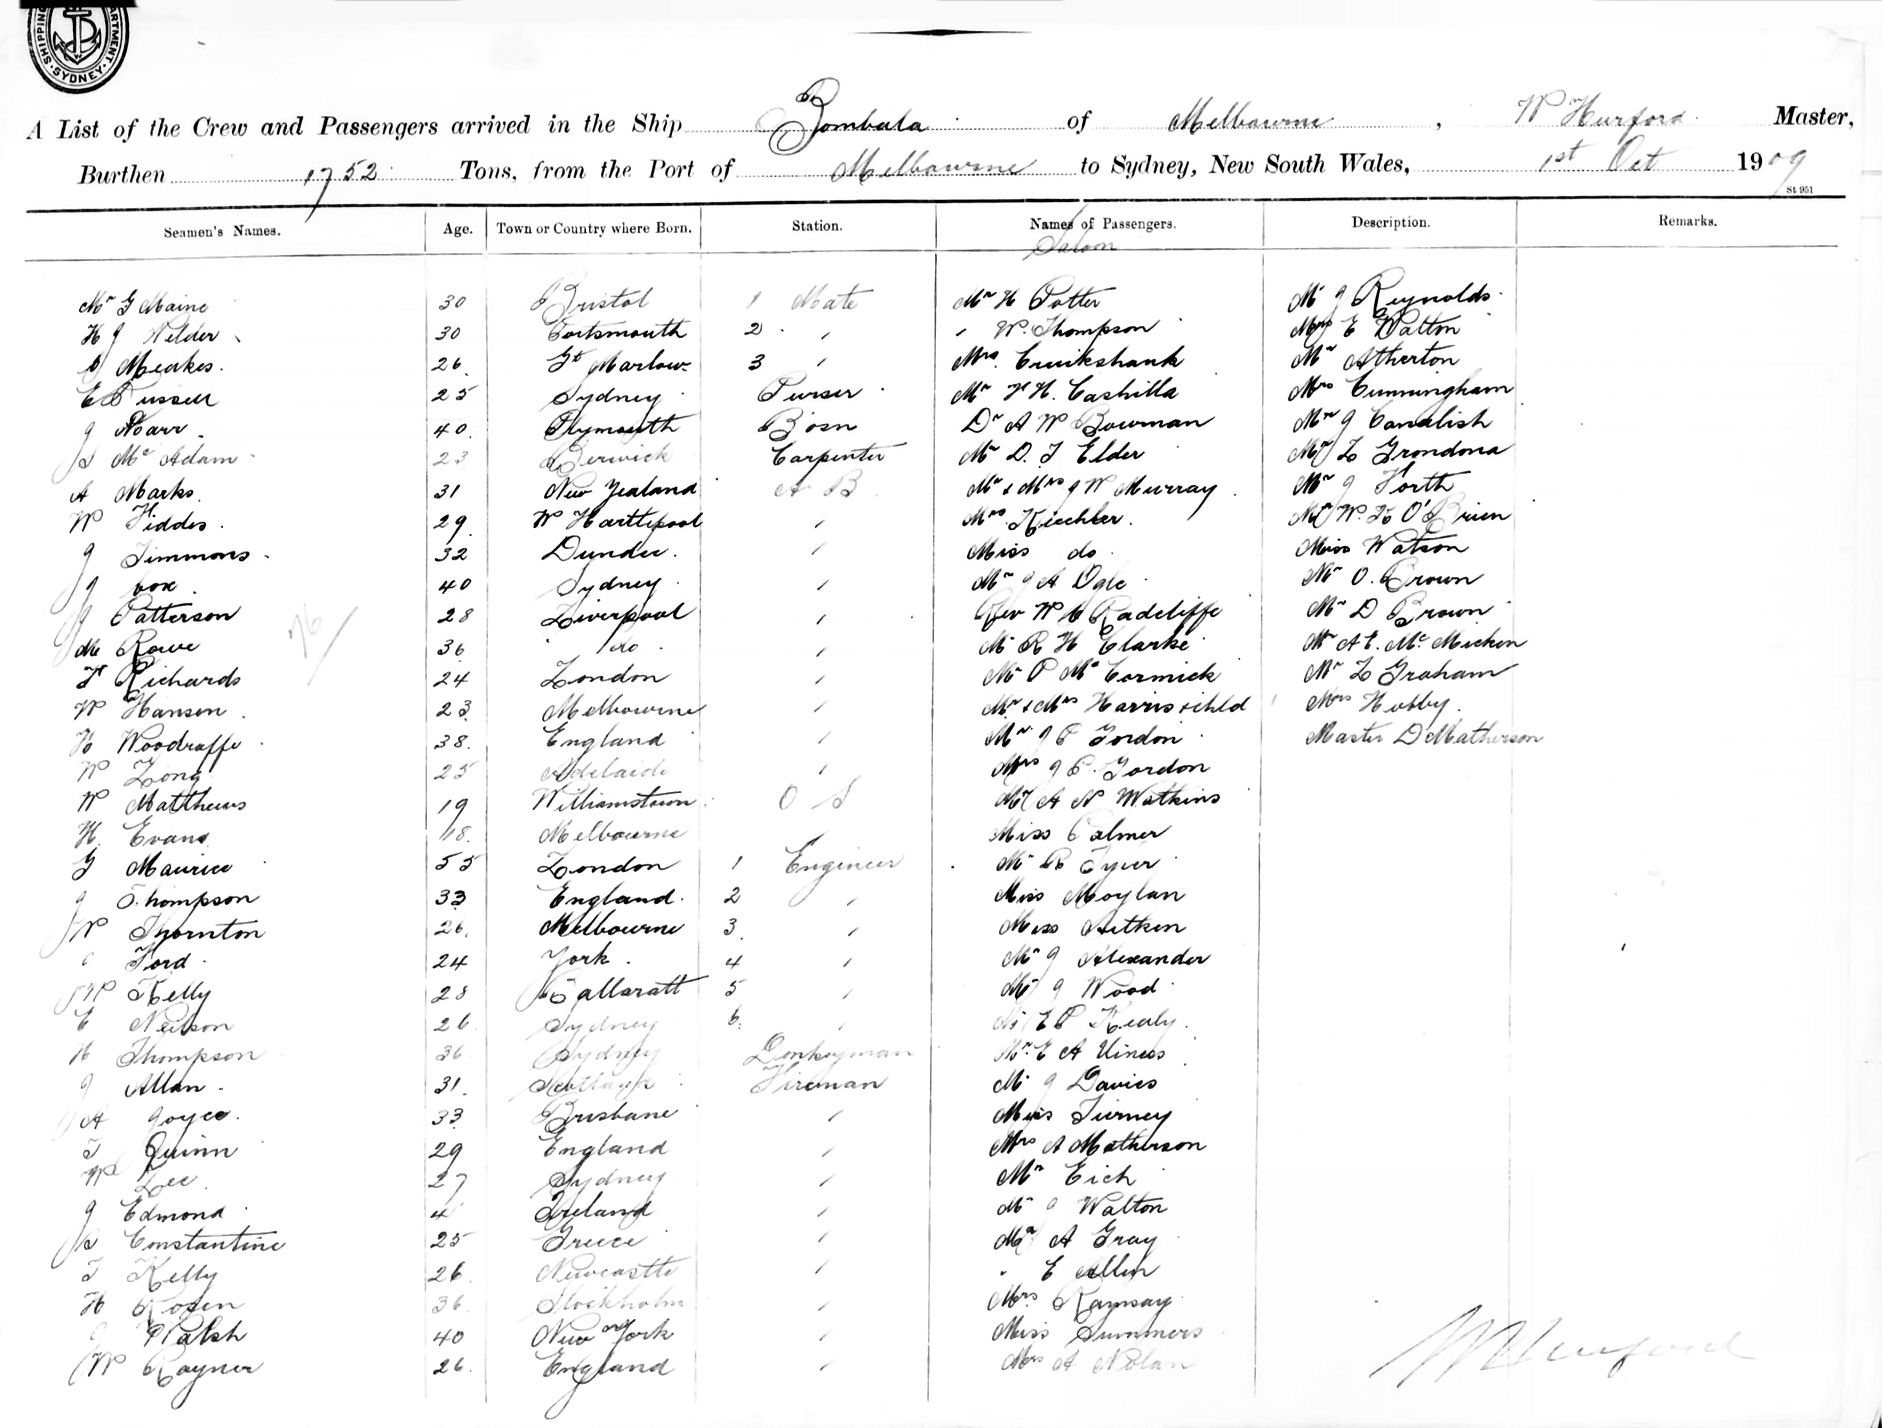 SHIPPING DEPARTMENT SYDNEY
A List of the Crew and Passengers arrived in the Ship Bombala of Melbourne, W Hurford Master,
Burthen 1752 Tons, from the Port of Melbourne to Sydney, New South Wales, 1st Oct 1909
St 951
Seamen's Names. Age. Town or Country where Born. Station. Names of Passengers. Description. Remarks.
Saloon
Mr G Maine 30 Bristol 1 Mate Mr H Potter Mr J Reynolds
H J Nelder 30 Portsmouth 2 " " W. Thompson Mrs E Dalton
Meakes 26 Gt Marlow 3 " Mrs. Cruikshank Mr Atherton
E 25 Sydney Purser Mr F H. Cashilla Mrs Cunningham
J Marr 40 Plymouth Bosn Dr A W Bowman Mr J Cavalish
S Mc Adam 23 Berwick Carpenter Mr D. J Elder Mr L Grondona
A Marks 31 New Zealand A B Mr & Mrs J W Murray Mr J Forth
W Fiddes 29 W Hartlepool " Mrs. Kuchler Mr W. H O'Brien
J Simmons 32 Dundee " Miss do Miss Watson
J Cox 40 Sydney " Mr J A Ogle Mr O. Brown
J Patterson 28 Liverpool " Rev W C Radcliffe Mr D Brown
M Rowe 36 " do " Mr R H Clarke Mr A E. Mc Micken
F Richards 24 London " Mr P Mc Cormick Mr L Graham
W Hansen 23 Melbourne " Mr & Mrs Harris & child Mrs Hobby
H Woodroffe 38 England " Mr J P Gordon Master D Matherson
W Long 25 Adelaide " Mrs J P. Gordon
W Matthews 19 Williamstown O S Mr A N Watkins
H. Evans 18 Melbourne Miss Palmer
G Maurice 55 London 1 Engineer Mr R Tyler
J Thompson 33 England 2 " Miss Moylan
W Thornton 26 Melbourne 3 " Miss Aitken
Ford 24 York 4 " Mr J Alexander
W Kelly 28 Ballaratt 5 " Mr J Wood
E Neilson 26 Sydney 6 " Mr E P Kealy
H Thompson 36 Sydney Donkeyman Mr E A Viness
J Allan 31 Scotland Fireman Mr J Davies
A Joyce 33 Brisbane " Miss Tierney
T Quinn 29 England " Mrs A Matherson
W Lee 27 Sydney " Mr Eich
J Edmond 4 Ireland " Mr J Walton
S Constantine 25 Greece " Mr A Gray
T Kelly 26 Newcastle " " E Allen
H Rosen 36 Stockholm " Mrs Ramsay
J Walsh 40 New York " Miss Summers
W Rayner 26 England " Mrs A Nolan
W Hurford